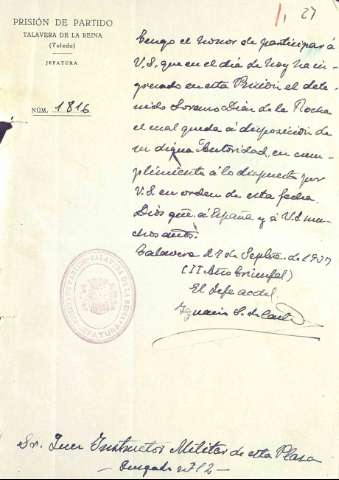 1, 27
PRISIÓN DE PARTIDO
TALAVERA DE LA REINA
(Toledo)
JEFATURA
NÚM. 1816
Tengo el honor de participar á
V.S. que en el día de hoy ha in-
gresado en esta Prisión el dete-
nido Díaz de la Rocha
el cual queda á disposición de
su digna Autoridad, en cum-
plimiento á lo dispuesto por
V.S. en orden de esta fecha
Dios gue á España y á V.S. mu-
chos años.
Talavera de Septbre. de 1937
(II Año Triunfal)
El Jefe acctal.
Ignacio S. de
JEFATURA
Sr. Juez Instructor Militar de esta Plaza
Juzgado nº 12-